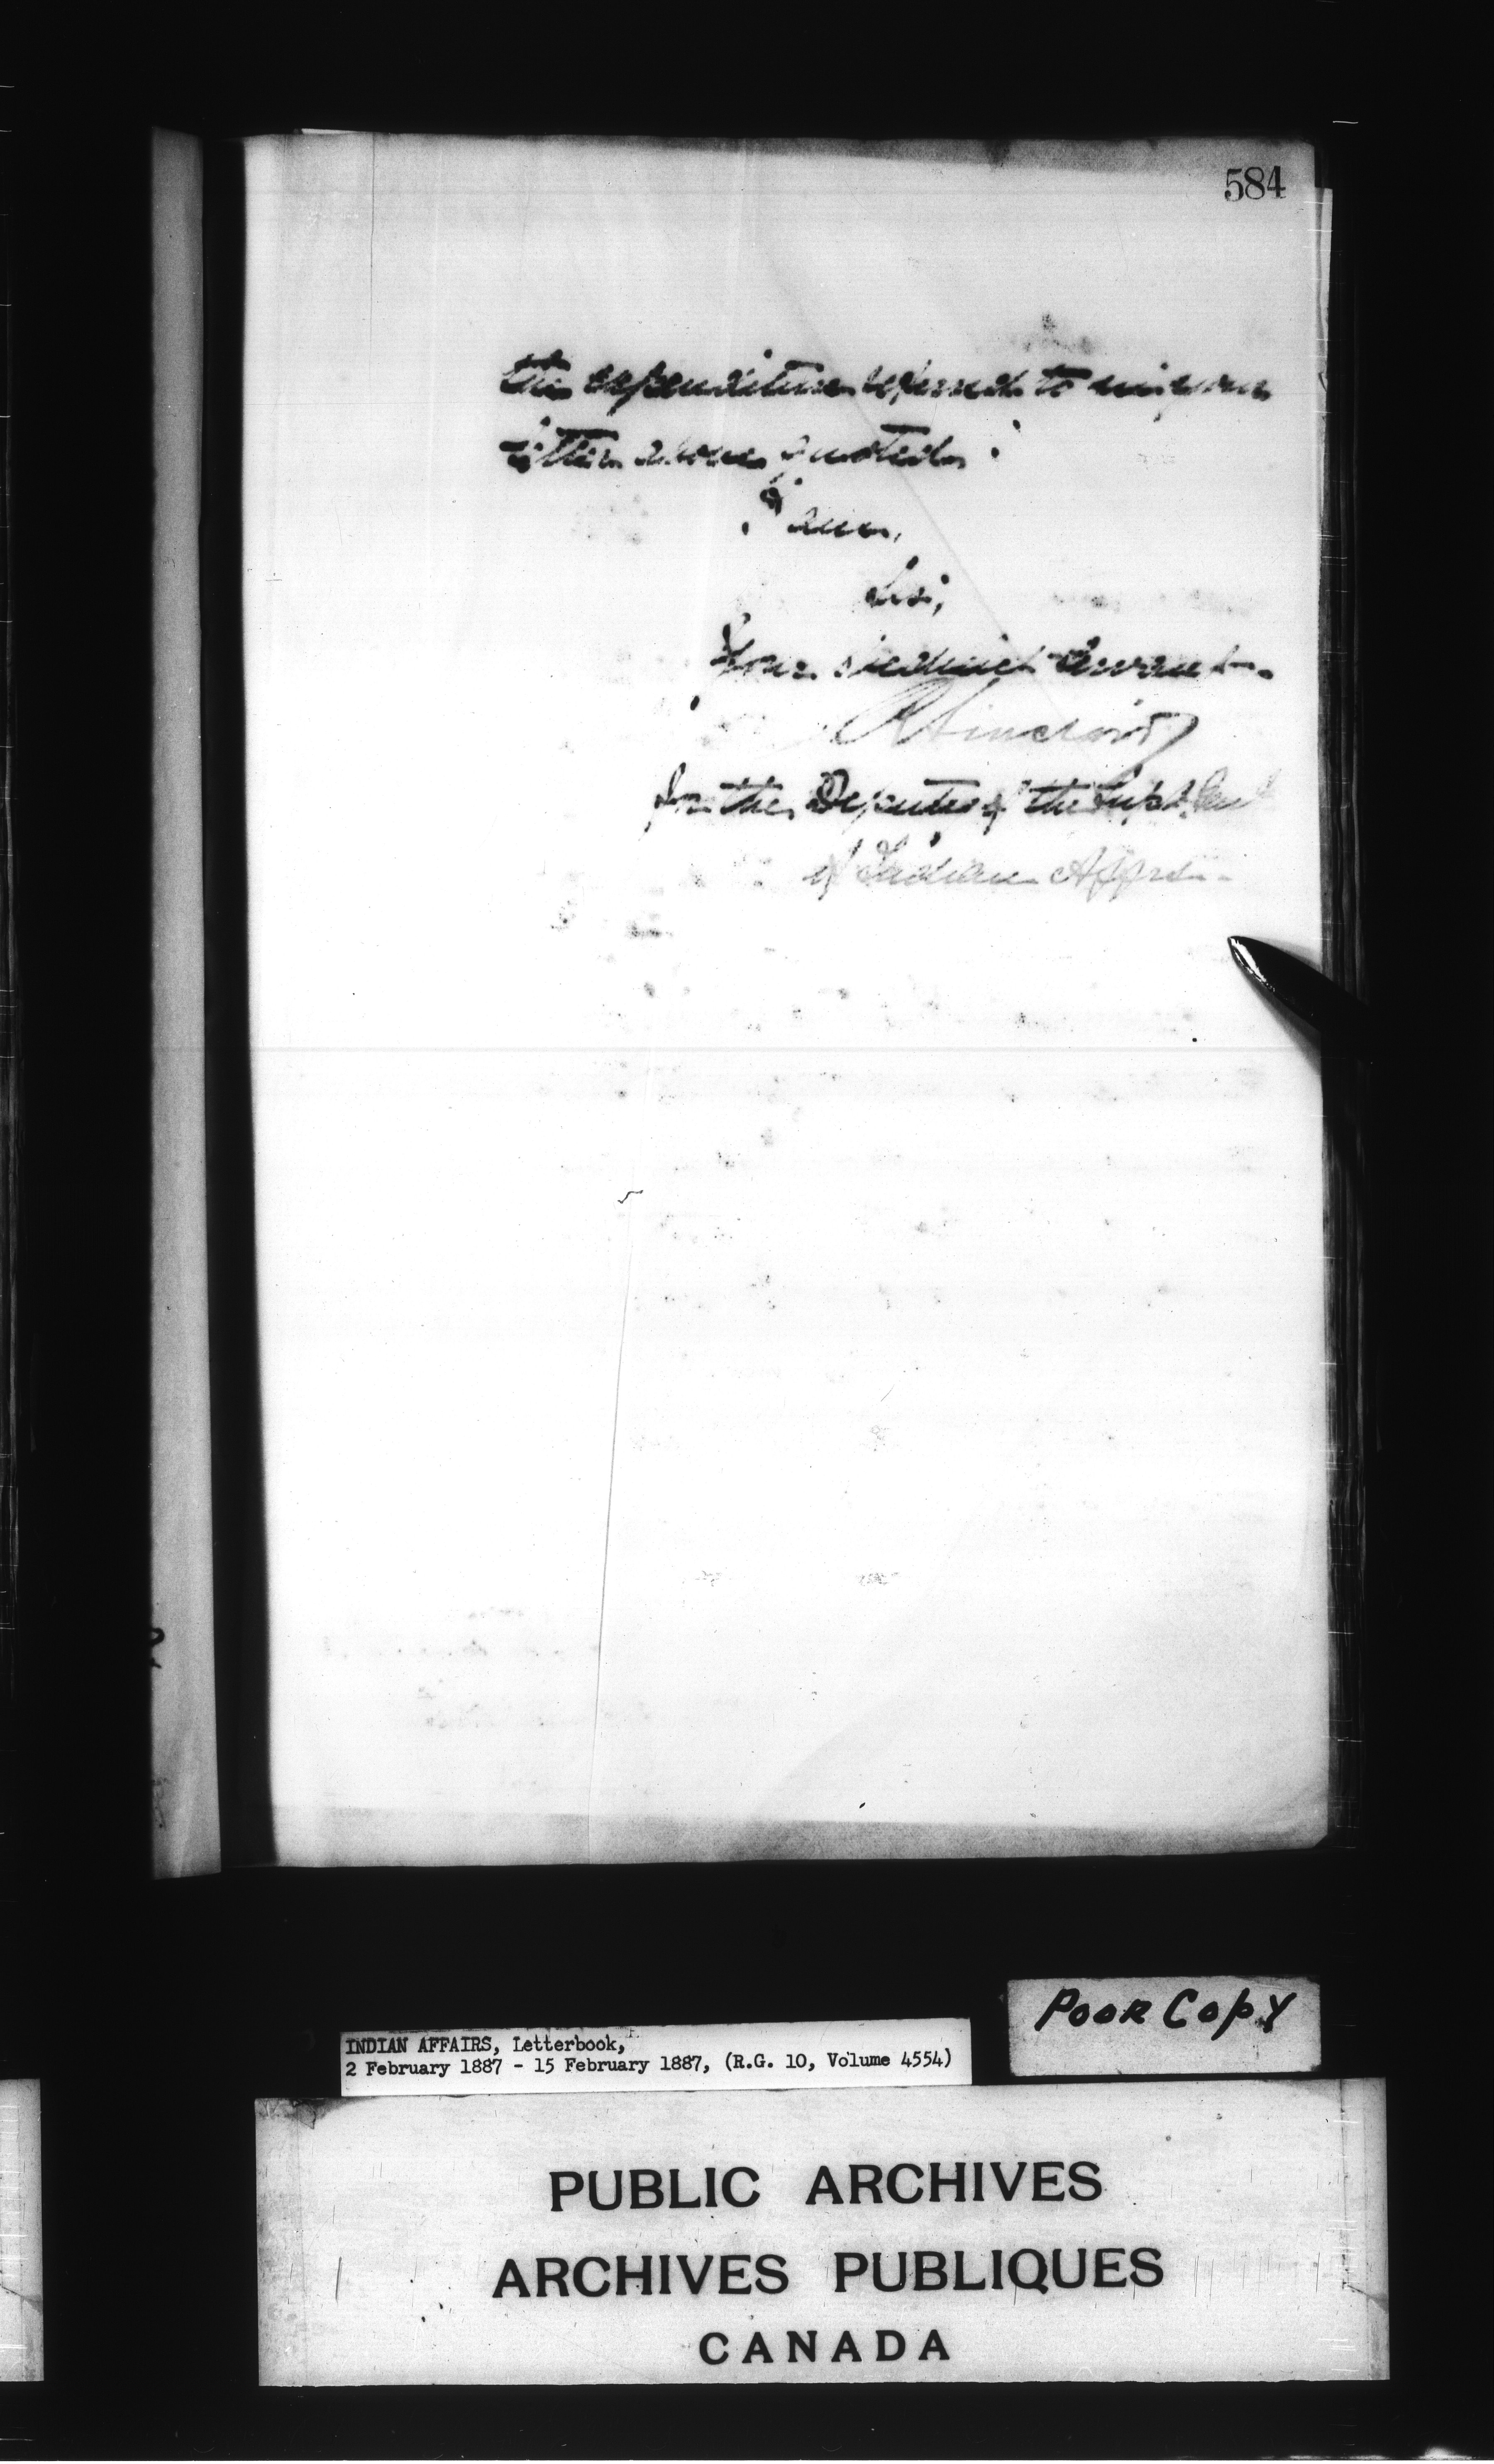 584
the expenditure referred to in your
letter above quoted.
I am,
Sir,
Your obedient Servant.
R Sinclair
for the Deputy of the Supt. Gen
of Indian Affrs.
POOR COPY
INDIAN AFFAIRS, Letterbook,
2 February 1887 - 15 February 1887, (R.G. 10, Volume 4554)
PUBLIC ARCHIVES
ARCHIVES PUBLIQUES
CANADA